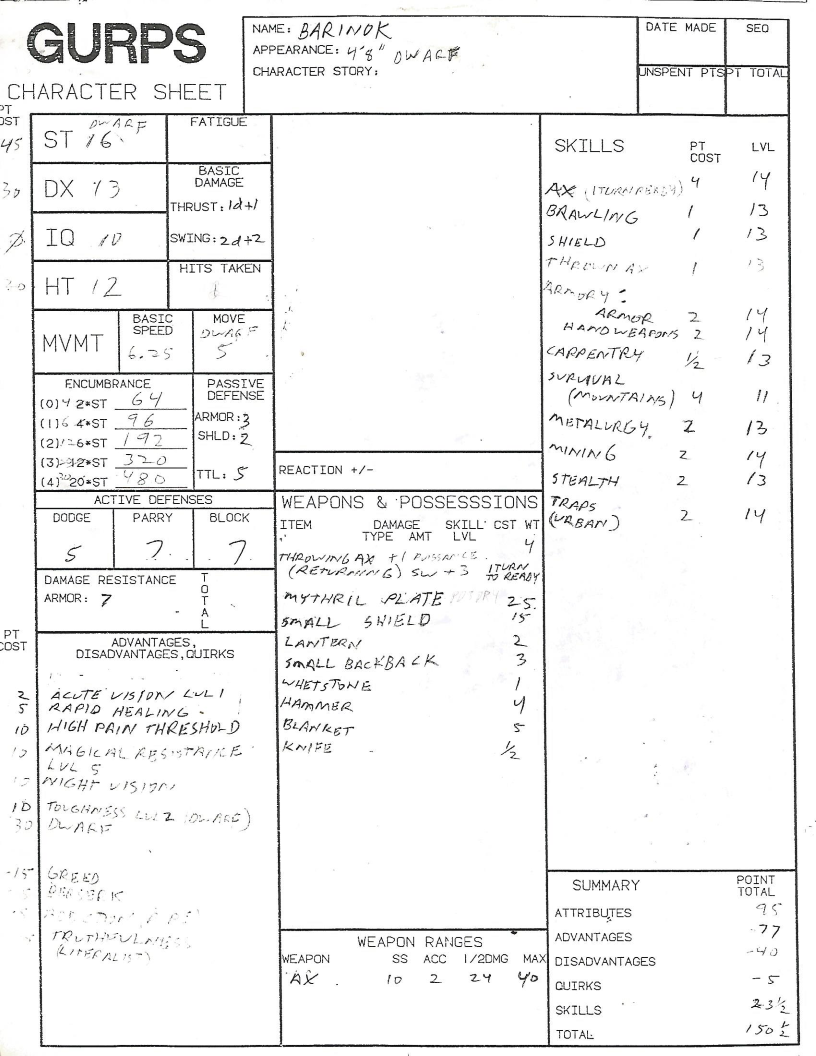 GURPS
CHARACTER SHEET
NAME: BARINOK
APPEARANCE: 4'8" DWARF
CHARACTER STORY:
DATE MADE
SEQ
UNSPENT PTS
PT TOTAL
PT
COST
45 ST 16 DWARF
30 DX 13
Ø IQ 10
HT 12
FATIGUE
BASIC
DAMAGE
THRUST: 1d+1
SWING: 2d+2
HITS TAKEN
MVMT
BASIC
SPEED
6.25
MOVE
DWARF
5
ENCUMBRANCE
(0) 4 2*ST 64
(1) 6 4*ST 96
(2) 6*ST 192
(3) 12*ST 320
(4) 20*ST 480
PASSIVE
DEFENSE
ARMOR: 3
SHLD: 2
TTL: 5
ACTIVE DEFENSES
DODGE PARRY BLOCK
5 7 7
DAMAGE RESISTANCE
ARMOR: 7
TOTAL
PT
COST
ADVANTAGES,
DISADVANTAGES, QUIRKS
2 ACUTE VISION LVL 1
5 RAPID HEALING
10 HIGH PAIN THRESHOLD
MAGICAL RESISTANCE
LVL 5
NIGHT VISION
10 TOUGHNESS LVL 2 (DWARF)
30 DWARF
-15 GREED
BERSERK
TRUTHFULNESS
(LITERALIST)
REACTION +/-
WEAPONS & POSSESSSIONS
ITEM DAMAGE SKILL CST WT
TYPE AMT LVL
4
THROWING AX +1
(RETURNING) SW +3 1 TURN
TO READY
MYTHRIL PLATE 25
SMALL SHIELD 15
LANTERN 2
SMALL BACKBACK 3
WHETSTONE 1
HAMMER 4
BLANKET 5
KNIFE 1/2
WEAPON RANGES
WEAPON SS ACC 1/2DMG MAX
AX 10 2 24 40
SKILLS PT LVL
COST
AX (1 TURN READY) 4 14
BRAWLING 1 13
SHIELD 1 13
THROWN AX 1 13
ARMORY:
ARMOR 2 14
HANDWEAPONS 2 14
CARPENTRY 1/2 13
SURVIVAL
(MOUNTAINS) 4 11
METALURGY 2 13
MINING 2 14
STEALTH 2 13
TRAPS
(URBAN) 2 14
SUMMARY POINT
TOTAL
ATTRIBUTES 95
ADVANTAGES 77
DISADVANTAGES -40
QUIRKS -5
SKILLS 23 1/2
TOTAL 150 1/2